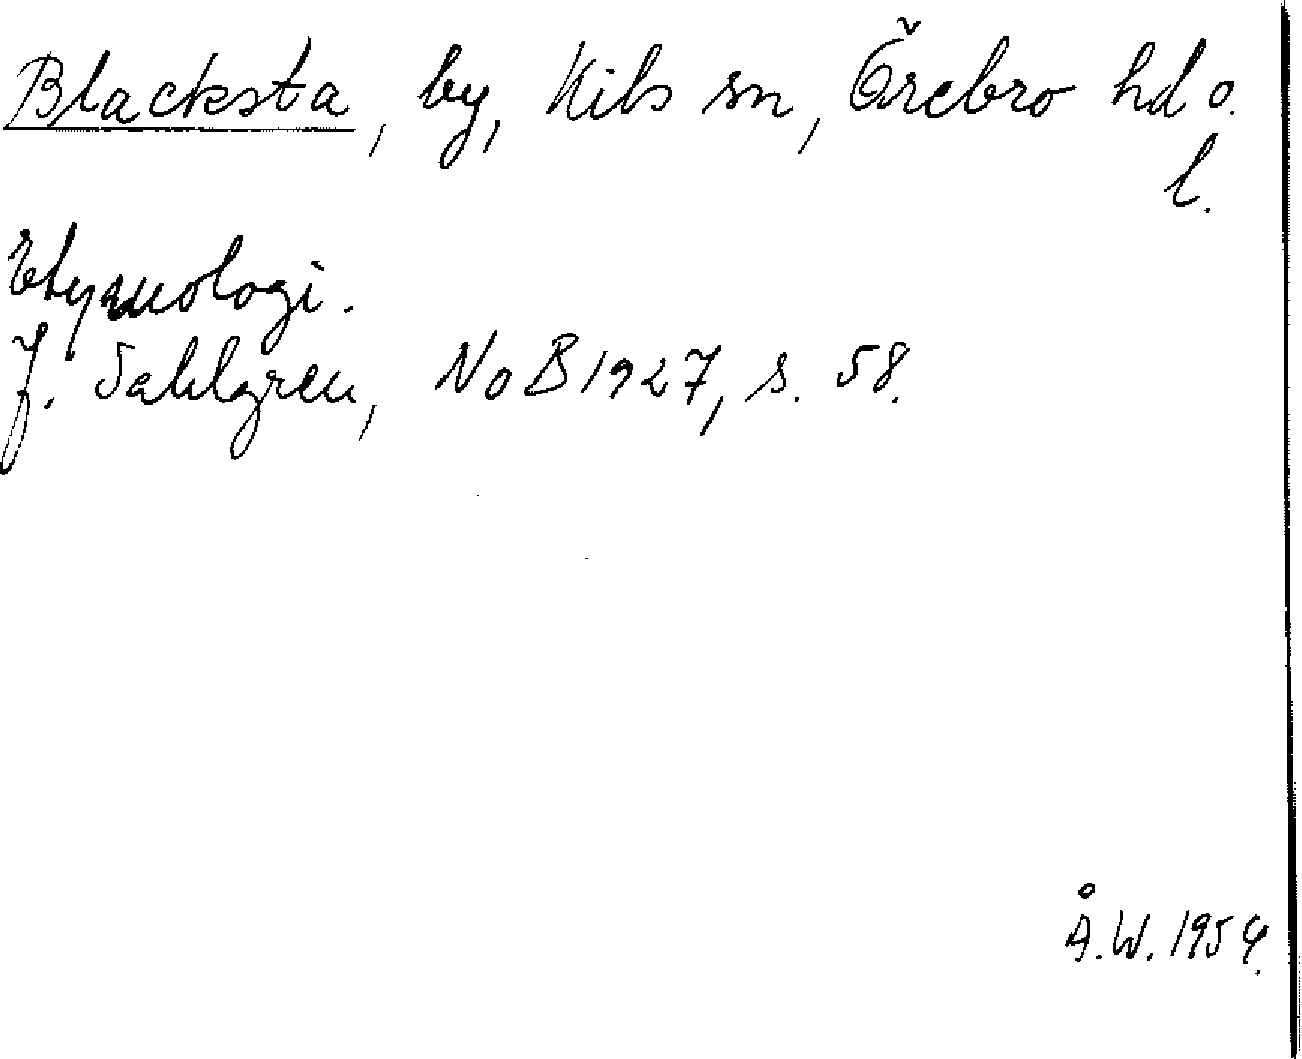 Blacksta, by, Kils sn, Örebro hd o.
l.
Etymologi.
J. Sahlgren, NoB 1927, s. 58.
Å.W. 1954.